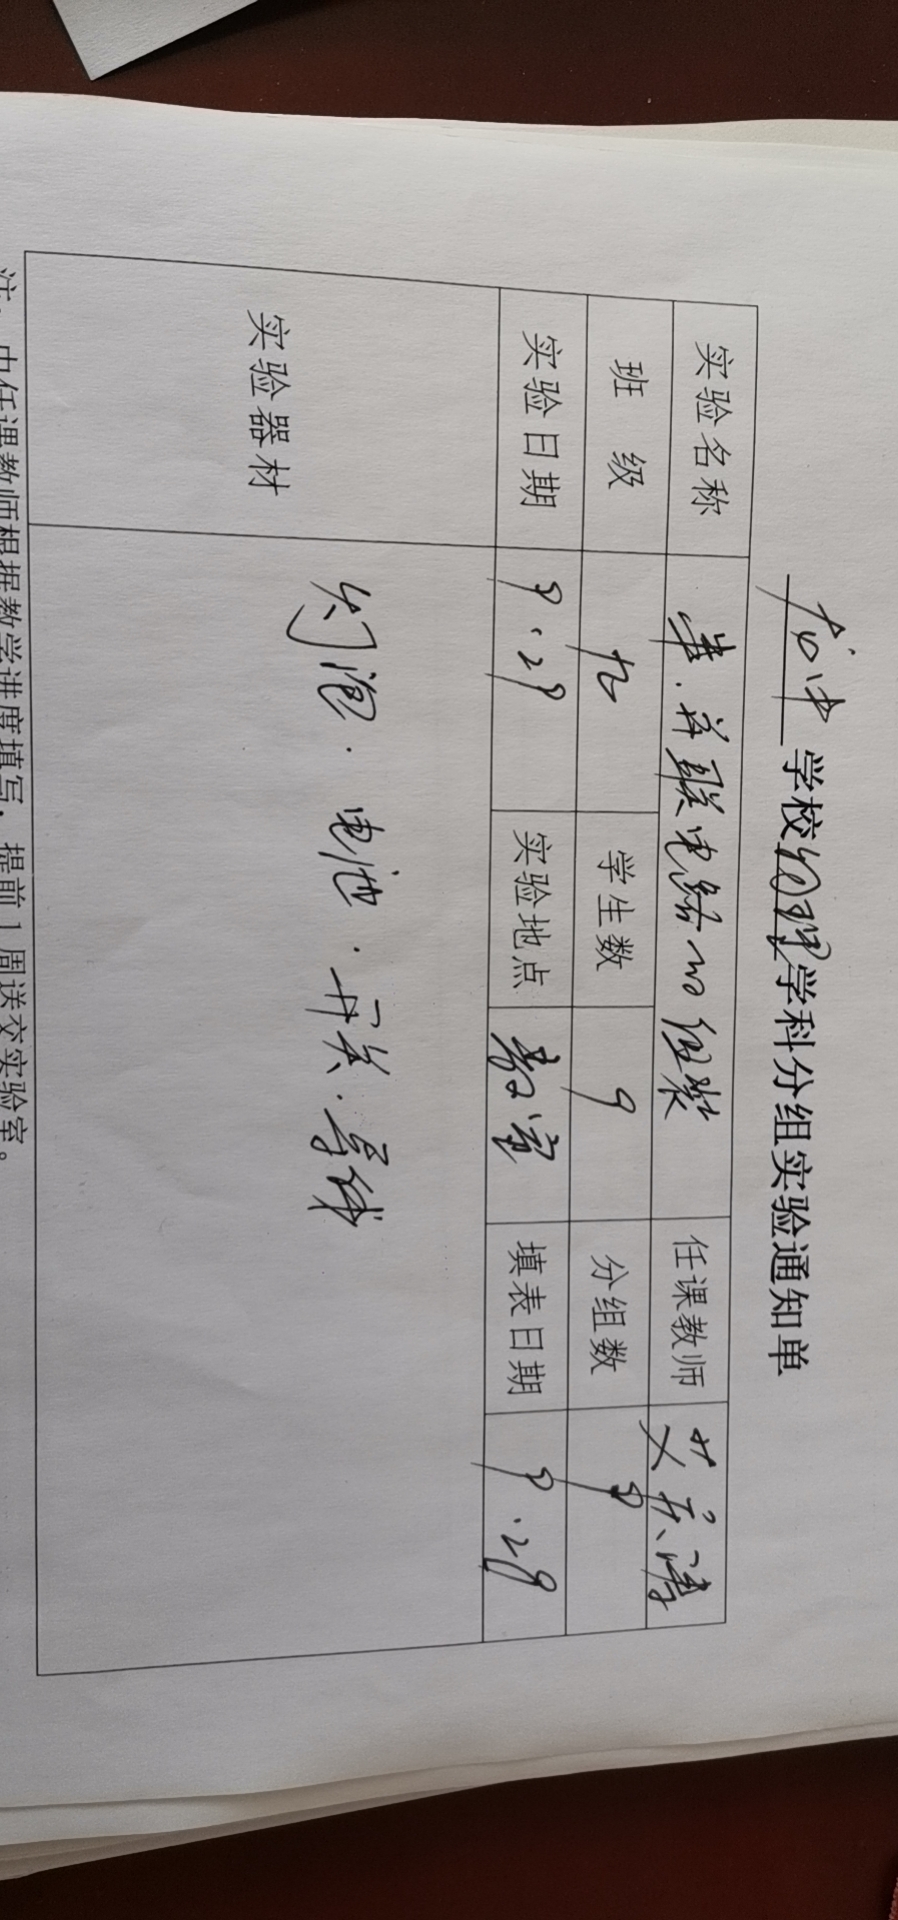 学校物理学科分组实验通知单
实验名称 串.并联电路的组装 任课教师
班 级 九 学生数 9 分组数
实验日期 9.29 实验地点 教室 填表日期 9.29
实验器材 灯泡.电池.开关.导线
注:由任课教师根据教学进度填写,提前1周送交实验室。